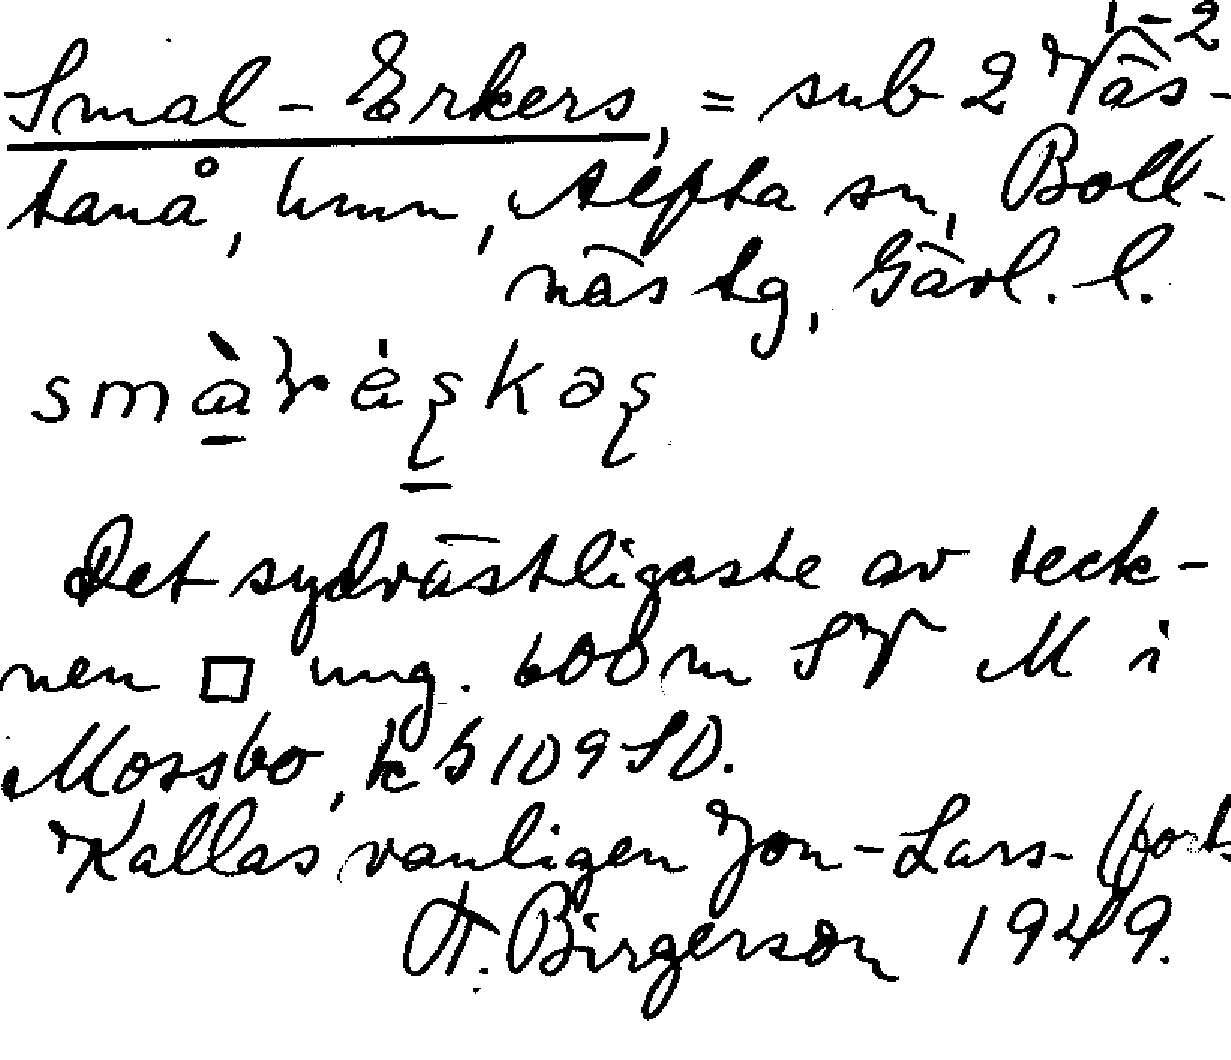 1-2
Smal-Erkers, = sub 2 Väs-
tanå, hmn, Alfta sn, Boll-
näs tg, Gävl. l.
Det sydvästligaste av teck-
nen □ ung. 600 m SV M i
Mossbo, k 5109 SO.
Kallas vanligen Jon-Lars- (forts
H. Birgerson 1949.